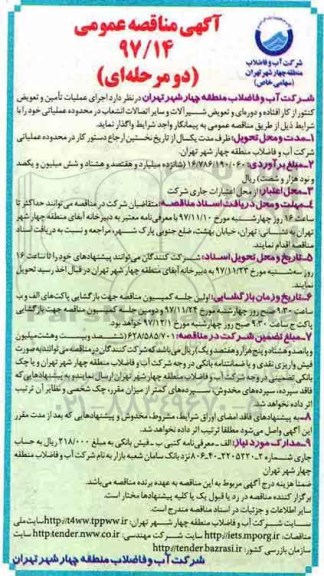 آگهی مناقصه عمومی
۹۷/۱۴
(دو مرحله‌ای)
شرکت آب و فاضلاب
منطقه چهار شهر تهران
(سهامی خاص)
شرکت آب و فاضلاب منطقه چهار شهر تهران در نظر دارد اجرای عملیات تأمین و تعویض
کنتور از کار افتاده و دوره‌ای و تعویض شیرآلات و سایر اتصالات انشعاب در محدوده عملیاتی خود را با
شرایط ذیل از طریق مناقصه عمومی به پیمانکار واجد شرایط واگذار نماید.
۱-مدت و محل تحویل: ظرف مدت یکسال از تاریخ نخستین ارجاع دستور کار در محدوده عملیاتی
شرکت آب و فاضلاب منطقه چهار شهر تهران
۲-مبلغ برآوردی: ۱۶/۷۸۶/۱۹۰/۰۶۰ (شانزده میلیارد و هفتصد و هشتاد و شش میلیون و یکصد
و نود هزار و شصت) ریال
۳-محل اعتبار: از محل اعتبارات جاری شرکت
۴-مهلت و محل دریافت اسناد مناقصه: متقاضیان شرکت در مناقصه می‌توانند حداکثر تا
ساعت ۱۶ روز چهارشنبه مورخ ۹۷/۱۱/۱۰ با معرفی‌نامه معتبر به دبیرخانه آبفای منطقه چهار شهر
تهران به نشانی: تهران، خیابان بهشت، ضلع جنوبی پارک شهر، مراجعه و نسبت به دریافت اسناد
مناقصه اقدام نمایند.
۵-تاریخ و محل تحویل اسناد: شرکت کنندگان می‌توانند پیشنهادهای خود را تا ساعت ۱۶
روز سه‌شنبه مورخ ۹۷/۱۱/۲۳ به دبیرخانه آبفای منطقه چهار شهر تهران در قبال اخذ رسید تحویل
نمایند.
۶-تاریخ و زمان بازگشایی: اولین جلسه کمیسیون مناقصه جهت بازگشایی پاکت‌های الف و ب
ساعت ۹:۳۰ صبح روز چهارشنبه مورخ ۹۷/۱۱/۲۴ و دومین جلسه کمیسیون مناقصه جهت بازگشایی
پاکت ج ساعت ۹:۳۰ صبح روز چهارشنبه مورخ ۹۷/۱۲/۱ خواهد بود.
۷-مبلغ تضمین شرکت در مناقصه: ۶۲۸/۵۸۵/۷۰۱ (ششصد و بیست و هشت میلیون
و پانصد و هشتاد و پنج هزار و هفتصد و یک) ریال می‌باشد که شرکت کنندگان در مناقصه می‌توانند به صورت
فیش واریزی نقدی و یا ضمانتنامه بانکی در وجه شرکت آب و فاضلاب منطقه چهار شهر تهران و یا چک
بانکی تضمینی در وجه شرکت آب و فاضلاب منطقه چهار شهر تهران ارسال نمایند و به پیشنهادهایی که
فاقد سپرده، سپرده‌های مخدوش، سپرده‌های کمتر از میزان مقرر، چک شخصی و نظایر آن ترتیب
اثر داده نخواهد شد.
۸-به پیشنهادهای فاقد امضای اوراق شرایط، مشروط، مخدوش و پیشنهادهایی که بعد از مدت مقرر
این آگهی واصل می‌شود مطلقا ترتیب اثر داده نخواهد شد.
۹-مدارک مورد نیاز: الف - معرفی‌نامه کتبی ب - فیش بانکی به مبلغ ۲۱۸/۰۰۰ ریال به حساب
جاری شماره نزد بانک سامان شعبه بازار به نام شرکت آب و فاضلاب منطقه
چهار شهر تهران
ضمنا هزینه درج آگهی مربوط به این مناقصه به عهده برنده مناقصه می‌باشد.
برگزار کننده مناقصه در رد یا قبول یک یا کلیه پیشنهادها مختار است.
سایر اطلاعات و جزئیات در اسناد مناقصه مندرج است.
سایت شرکت آب و فاضلاب منطقه چهار شهر تهران: http://t4ww.tppww.ir سایت ملی
مناقصات: http://iets.mporg.ir سایت شرکت مهندسی: http:tender.nww.co.ir سایت
سازمان بازرسی کل کشور: http://tender.bazrasi.ir
شرکت آب و فاضلاب منطقه چهار شهر تهران